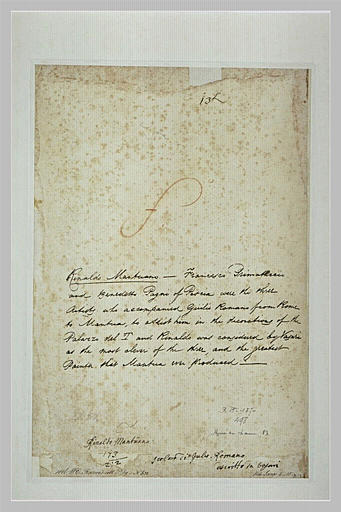 Rinaldo Mantuano — Francesco Primaticcio
and Benedetto Pagni of Pescia were the three
Artists who accompanied Giulio Romano from Rome
to Mantua, to assist him in the decorations of the
Palazzo del T. and Rinaldo was considered by Vasari
as the most clever of the three, and the greatest
Painter that Mantua ever produced —
Rinaldo Mantuano
193
212
scolari di Giulio Romano